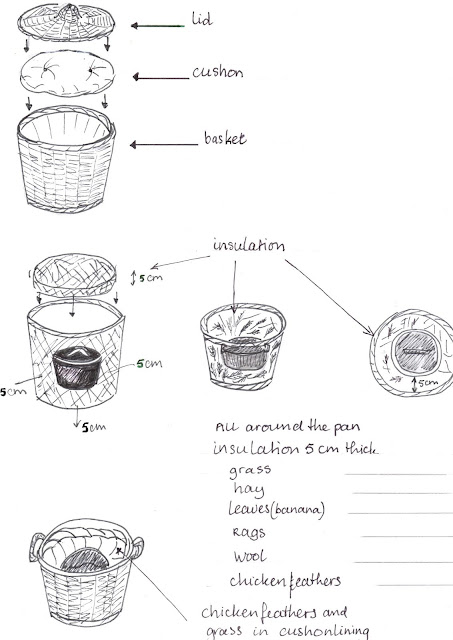 lid
cushon
basket
insulation
5cm
5cm
5cm
5cm
5cm
All around the pan
insulation 5cm thick
grass
hay
leaves(banana)
Rags
Wool
chickenfeathers
chickenfeathers and
grass in cushonlining